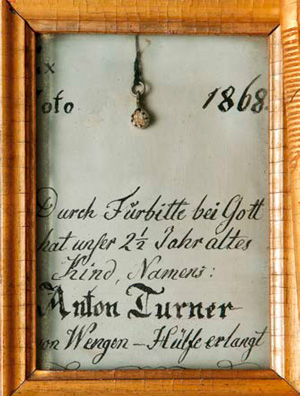 Ex
Voto 1868.
Durch Fürbitte bei Gott
hat unser 2½ Jahr altes
Kind, Namens:
Anton Turner
von Wengen – Hülfe erlangt